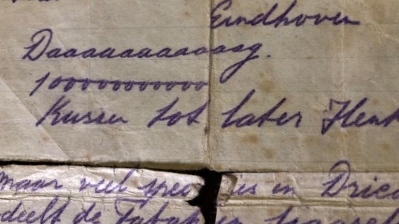 Eindhoven
Daaaaaaaaaaag.
1000000000000
Kussen tot later Henk
maar veel en
deelt de Tabak